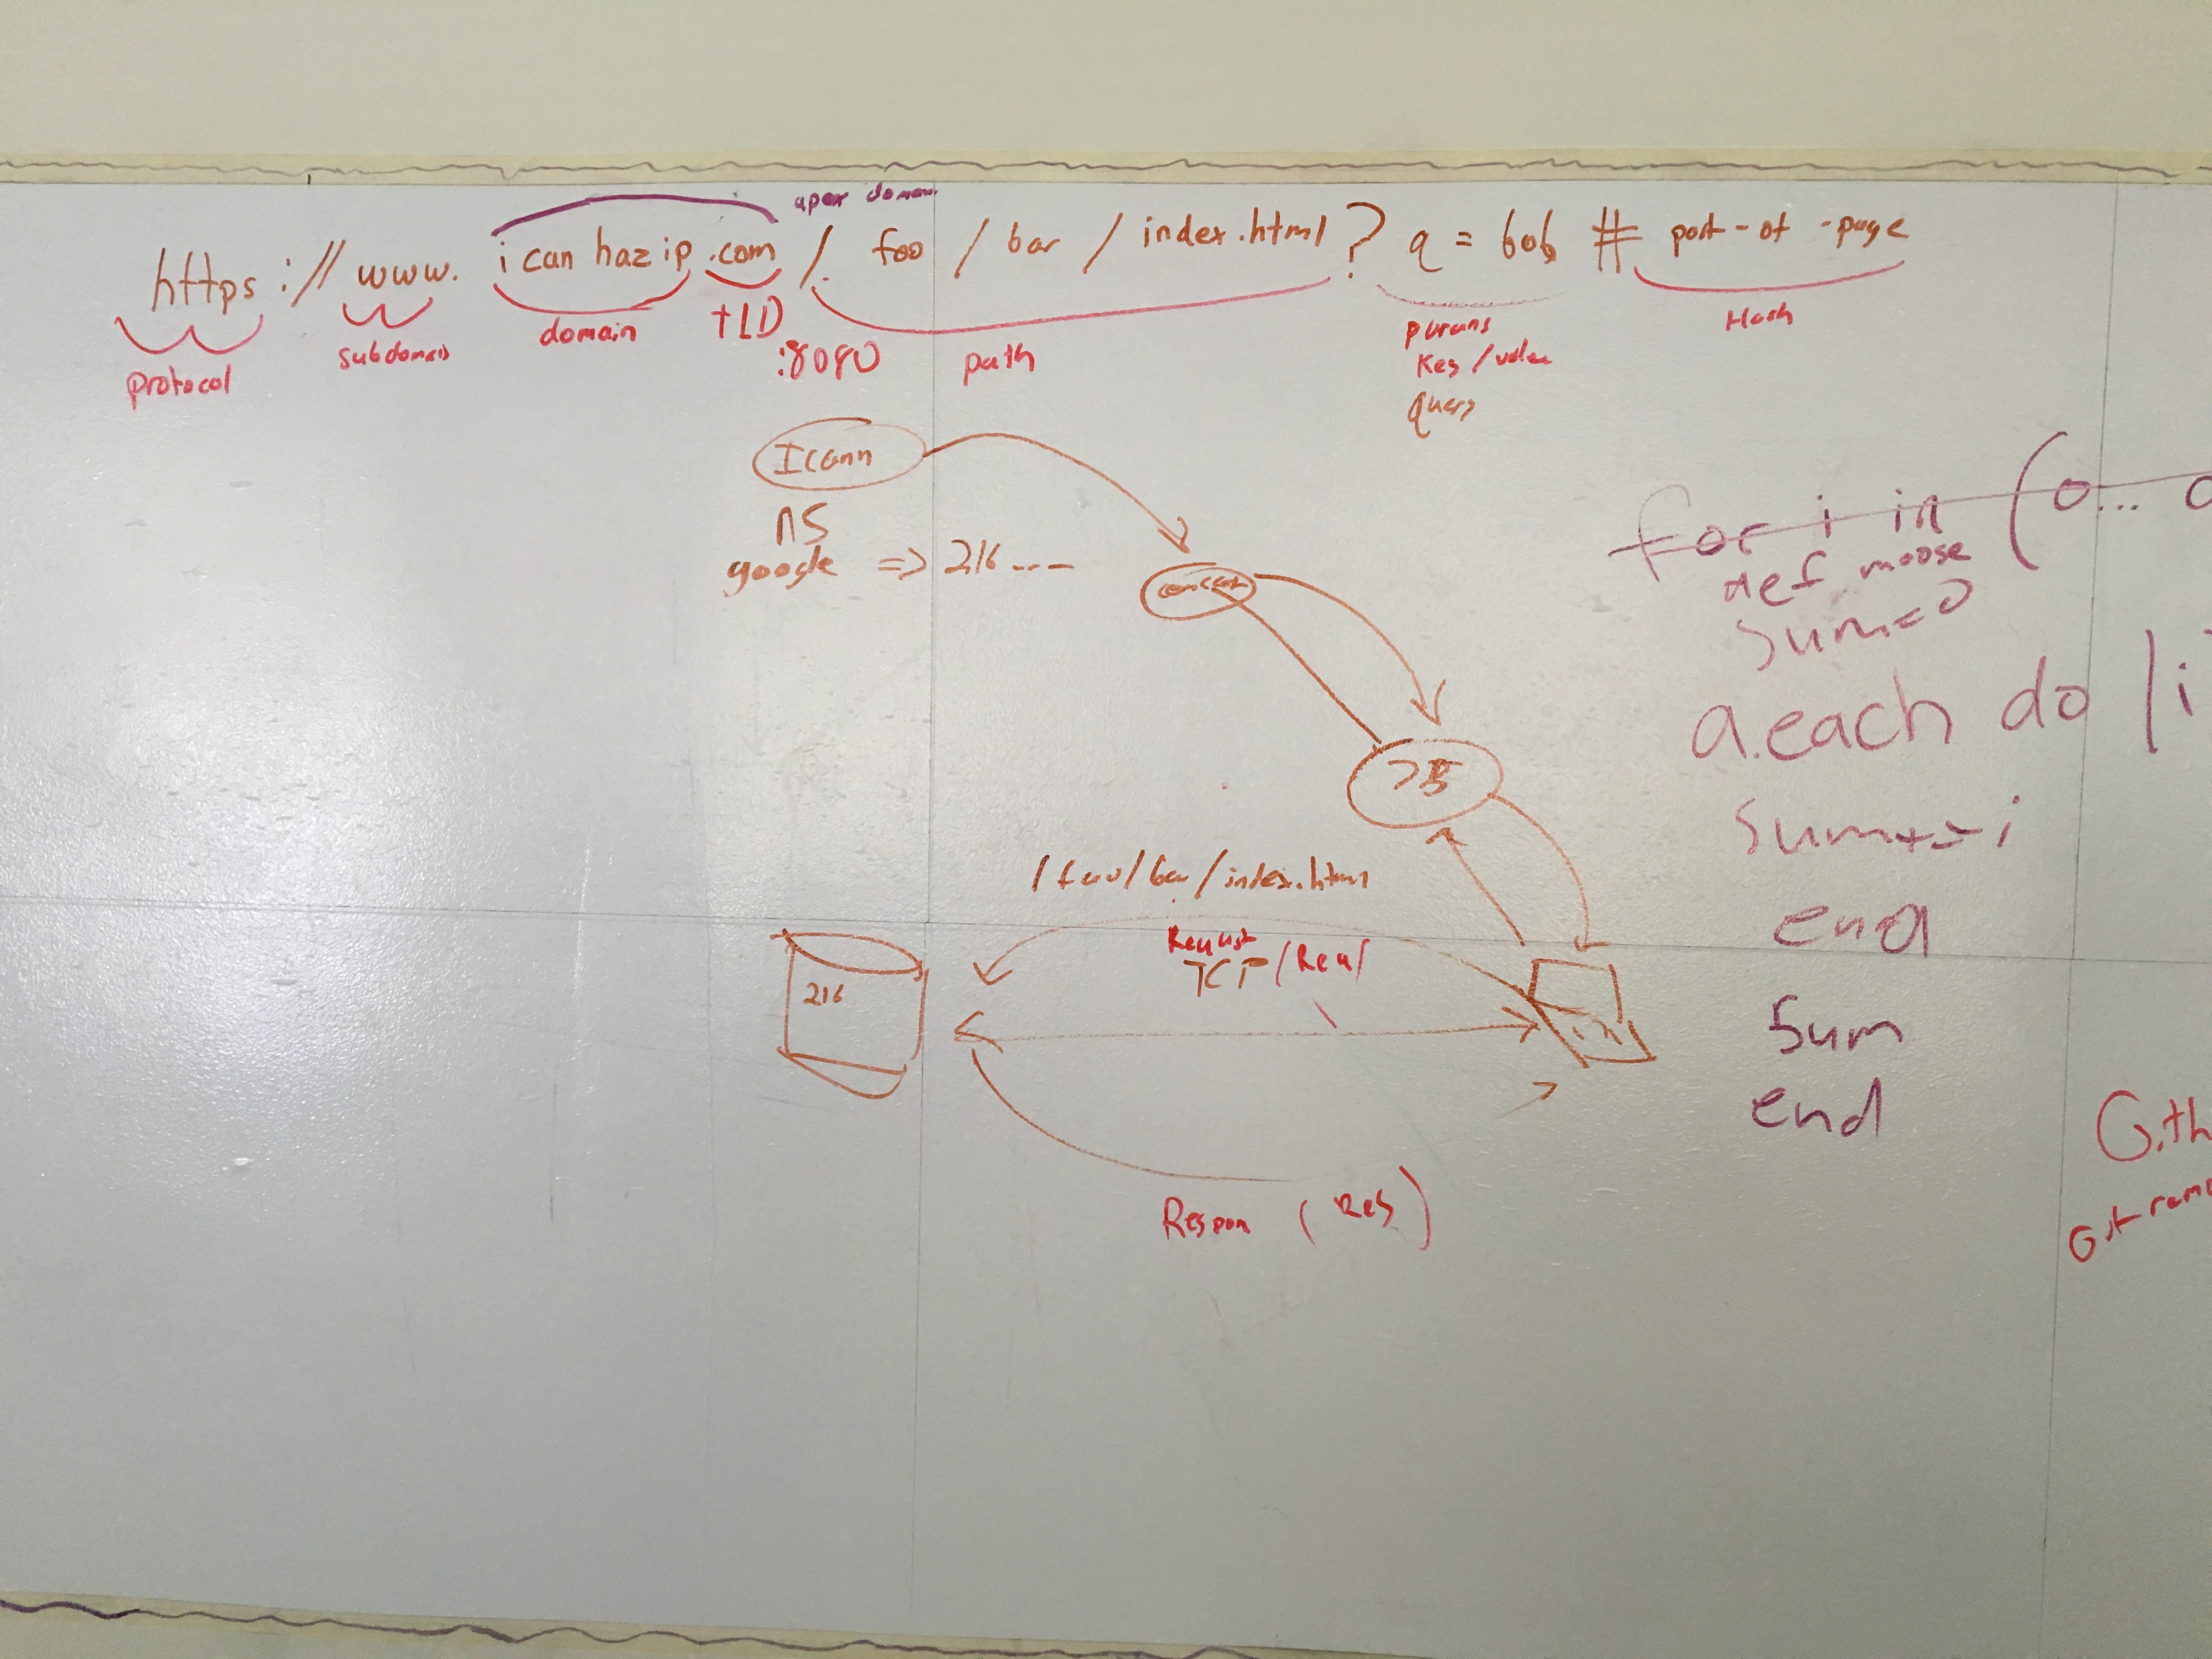 apex domain
https://www.icanhazip.com/foo/bar/index.html?q=bob#part-of-page
protocol
subdomain
domain
TLD
:8080
path
params
Key/value
query
Hash
Icann
NS
google => 216----
comcast
75
/foo/bar/index.html
Request
TCP/Req/
216
Respon (Res)
for i in (0...
def moose
sum=0
a.each do |i
sum+=i
end
sum
end
Gith
Git rem